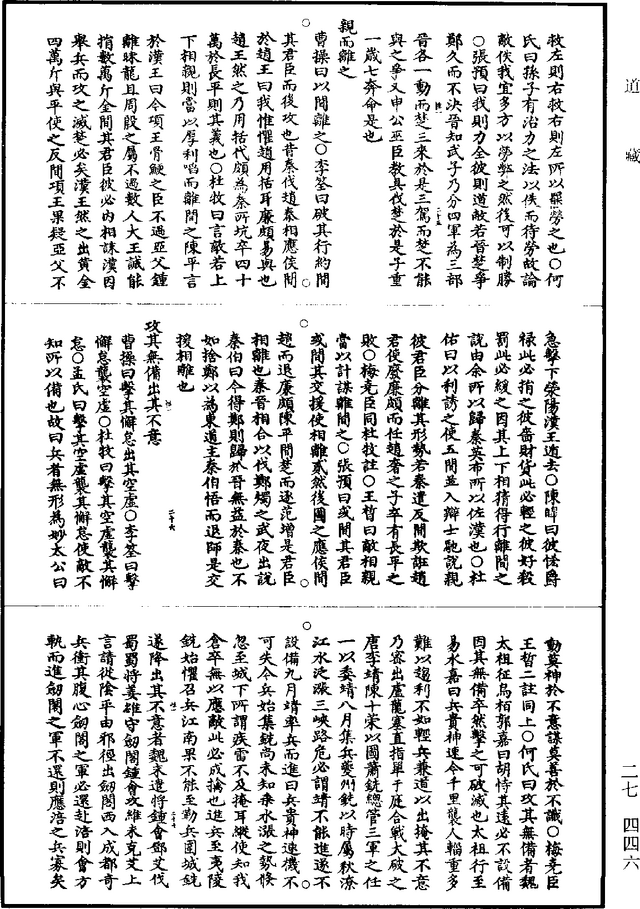 道藏
救左則右救右則左所以罷勞之也○何
氏曰孫子有治力之法以佚而待勞故論
敵佚我宜多方以勞弊之然後可以制勝
○張預曰我則力全彼則道敝若晉楚爭
鄭久而不決晉知武子乃分四軍為三部
晉各一動而楚三來於是三駕而楚不能
與之爭又申公巫臣教吳伐楚於是子重
一歲七奔命是也
親而離之
曹操曰以間離之○李筌曰破其行約間
其君臣而後攻也昔秦伐趙秦相應侯間
於趙王曰我惟懼趙用括耳廉頗易與也
趙王然之乃用括代頗為秦所坑卒四十
萬於長平則其義也○杜牧曰言敵若上
下相親則當以厚利啗而離間之陳平言
於漢王曰今項王骨鯁之臣不過亞父鍾
離昧龍且周殷之屬不過數人大王誠能
捐數萬斤金間其君臣彼必內相誅漢因
舉兵而攻之滅楚必矣漢王然之出黃金
四萬斤與平使之反間項王果疑亞父不
急擊下滎陽漢王遁去○陳皡曰彼恡爵
祿此必捐之彼嗇財貨此必輕之彼好殺
罰此必緩之因其上下相猜得行離間之
說由余所以歸秦英布所以佐漢也○杜
佑曰以利誘之使五間並入辯士馳說親
彼君臣分離其形勢若秦遣反間欺誑趙
君使廢廉頗而任趙奢之子卒有長平之
敗○梅堯臣同杜牧註○王晳曰敵相親
當以計謀離間之○張預曰或間其君臣
或間其交援使相離貳然後圖之應侯間
趙而退廉頗陳平間楚而逐范增是君臣
相離也秦晉相合以伐鄭燭之武夜出說
秦伯曰今得鄭則歸於晉無益於秦也不
如捨鄭以為東道主秦伯悟而退師是交
援相離也
攻其無備出其不意
曹操曰擊其懈怠出其空虛○李筌曰擊
懈怠襲空虛○杜牧曰擊其空虛襲其懈
怠○孟氏曰擊其空虛襲其懈怠使敵不
知所以備也故曰兵者無形為妙太公曰
動莫神於不意謀莫善於不識○梅堯臣
王晳二註同上○何氏曰攻其無備者魏
太祖征烏桓郭嘉曰胡恃其遠必不設備
因其無備卒然擊之可破滅也太祖行至
易水嘉曰兵貴神速今千里襲人輜重多
難以趨利不如輕兵兼道以出掩其不意
乃密出盧龍塞直指單于庭合戰大破之
唐李靖陳十策以圖蕭銑總管三軍之任
一以委靖八月集兵夔州銑以時屬秋潦
江水泛漲三峽路危必謂靖不能進遂不
設備九月靖率兵而進曰兵貴神速機不
可失今兵始集銑尚未知乘水漲之勢倏
忽至城下所謂疾雷不及掩耳縱使知我
倉卒無以應敵此必成擒也進兵至夷陵
銑始懼召兵江南果不能至勒兵圍城銑
遂降出其不意者魏末遣將鍾會鄧艾伐
蜀蜀將姜維守劒閣鍾會攻維未克艾上
言請從陰平由邪徑出劒閣西入成都奇
兵衝其腹心劒閣之軍必還赴涪則會方
軌而進劒閣之軍不還則應涪之兵寡矣
二七 四四六